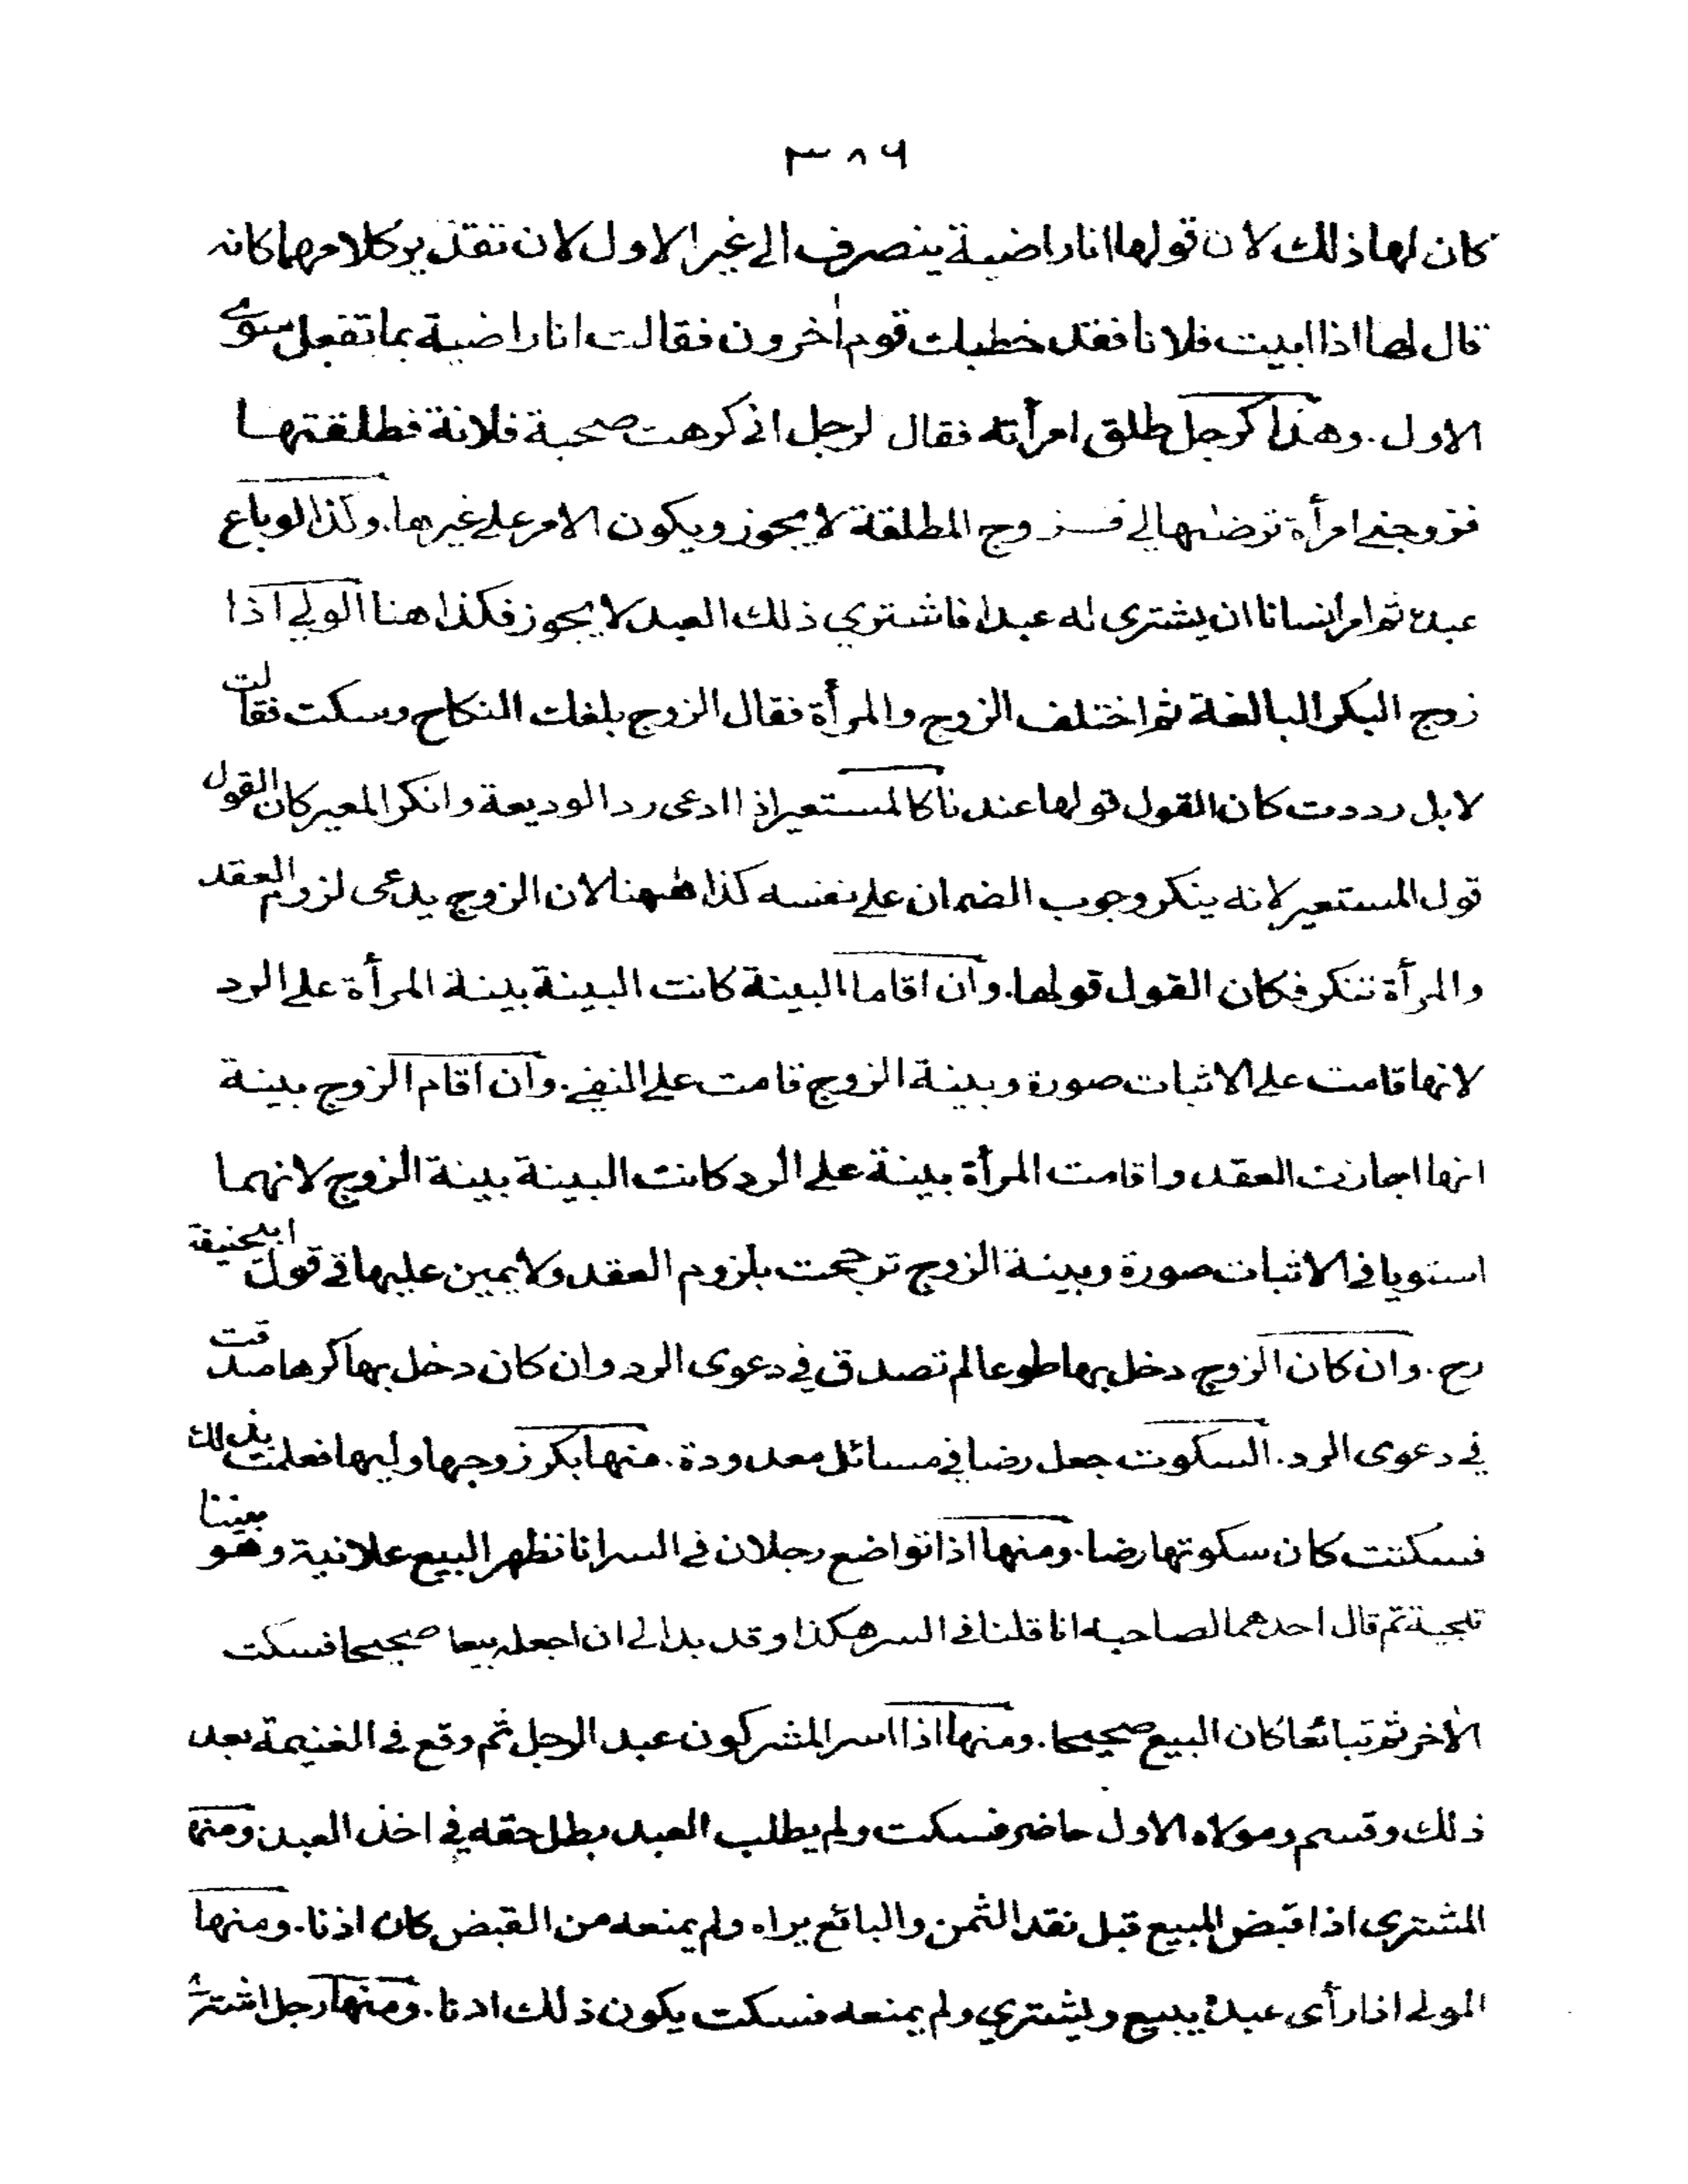 ٣٨٦
كان لها ذلك لان قولها انا راضية ينصرف الى غير الاول لان تقدير كلامهما كانه
قال لها اذا ابيت فلانا فقد خطبك قوم اٰخرون فقالت انا راضية بما تفعل سوى
الاول. وهذا كرجل طلق امرأته فقال لرجل اني كرهت صحبة فلانة فطلقتها
فزوجني امرأة ترضٰيها لي فزوج المطلقة لا يجوز ويكون الامر على غيرها. وكذا لو باع
عبده ثم امر انسانا ان يشترى له عبدا فاشترى ذلك العبد لا يجوز فكذا هنا الولي اذا
زوج البكر البالغة ثم اختلف الزوج والمرأة فقال الزوج بلغك النكاح وسكت فقالت
لا بل رددت كان القول قولها عندنا كالمستعير اذا ادعى رد الوديعة وانكر المعير كان القول
قول المستعير لانه ينكر وجوب الضمان على نفسه كذا ههنا لان الزوج يدعى لزوم العقد
والمرأة تنكر فكان القول قولها. وان اقاما البينة كانت البينة بينة المرأة على الرد
لانها قامت على الاثبات صورة وبينة الزوج قامت على النفي. وان اقام الزوج بينة
انها اجازت العقد واقامت المرأة بينة على الرد كانت البينة بينة الزوج لانهما
استويا في الاثبات صورة وبينة الزوج ترجحت بلزوم العقد ولا يمين عليها في قول ابيحنيفة
رح. وان كان الزوج دخل بها طوعا لم تصدق في دعوى الرد وان كان دخل بها كرها صدقت
في دعوى الرد. السكوت جعل رضا في مسائل معدودة. منها بكر زوجها وليها فعلمت بذلك
فسكتت كان سكوتها رضا. ومنها اذا تواضع رجلان في السر انا نظهر البيع علانية وهو بيننا
تلجية ثم قال احدهما لصاحبه انا قلنا في السر هكذا وقد بدا لي ان اجعله بيعا صحيحا فسكت
الاٰخر ثم تبائعا كان البيع صحيحا. ومنها اذا اسر المشركون عبد الرجل ثم وقع في الغنيمة بعد
ذلك وقسم ومولاه الاول حاضر فسكت ولم يطلب العبد بطل حقه في اخذ العبد ومنها
المشترى اذا قبض المبيع قبل نقد الثمن والبائع يراه ولم يمنعه من القبض كان اذنا. ومنها
المولى اذا رأى عبده يبيع ويشتري ولم يمنعه فسكت يكون ذلك اذنا. ومنها رجل اشترى